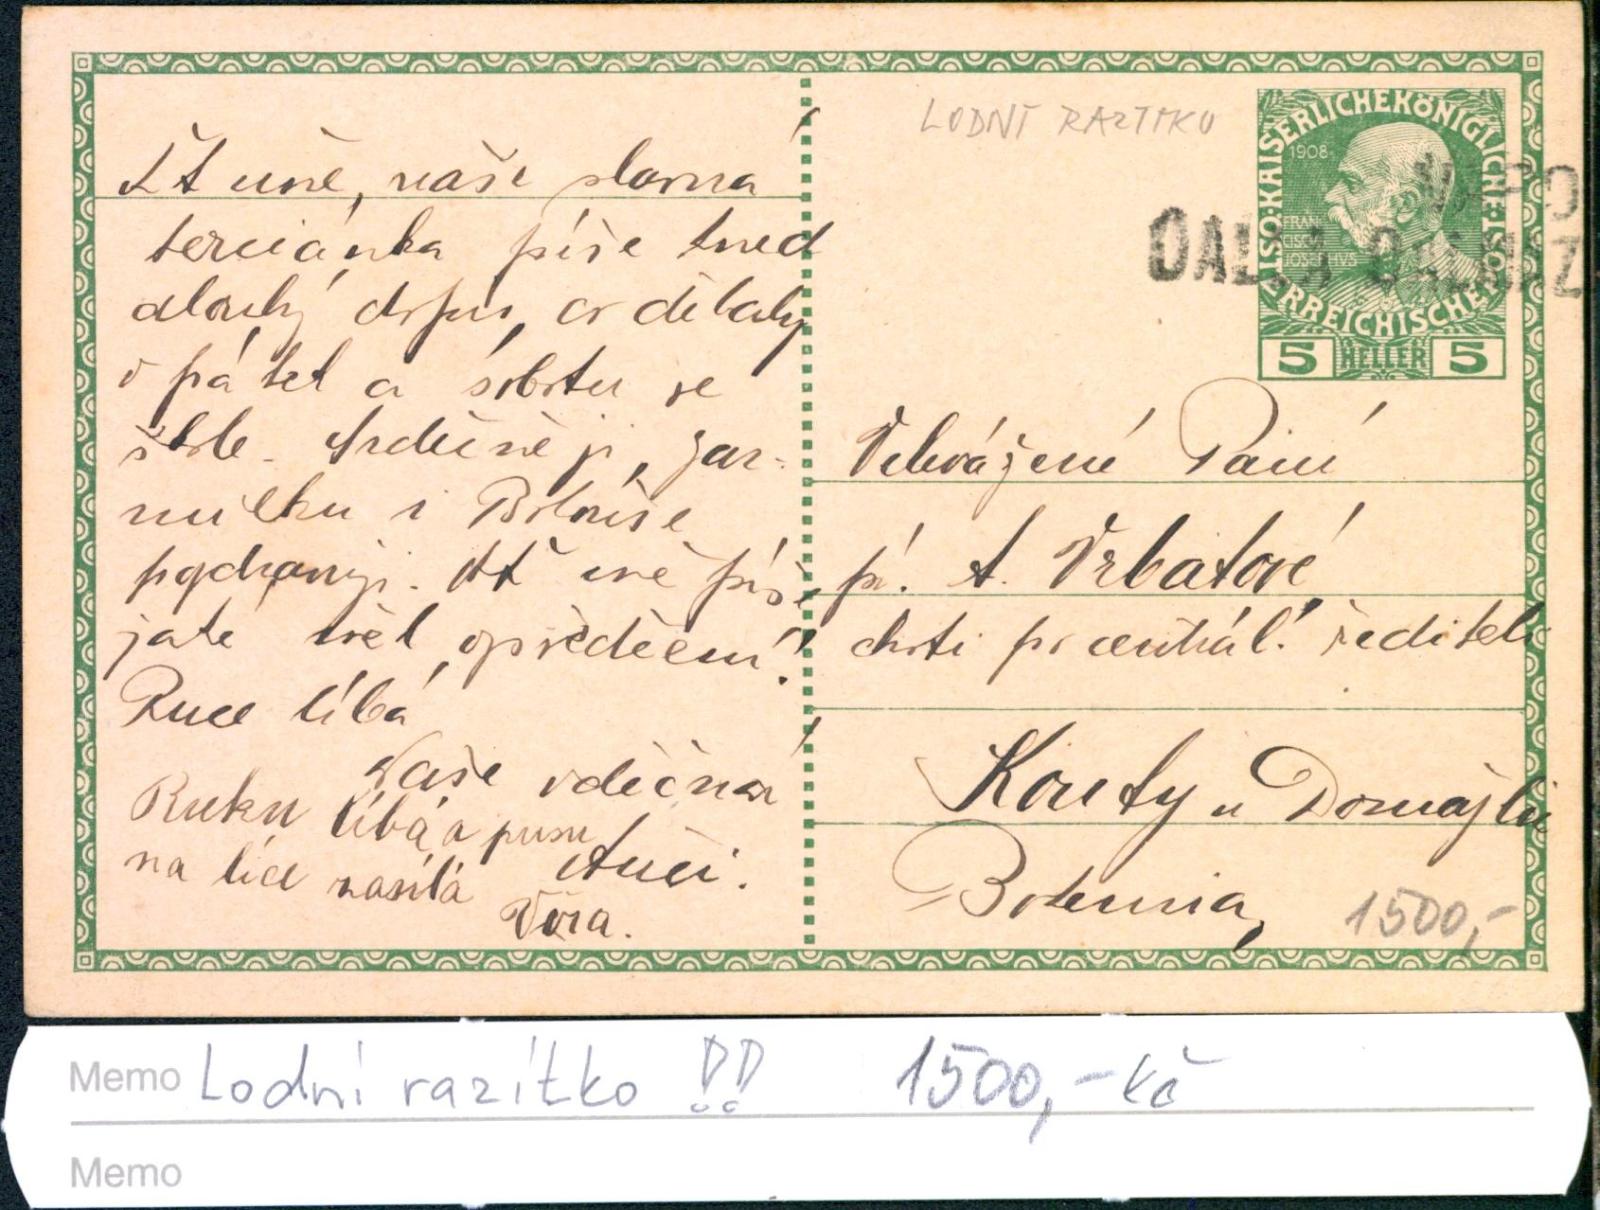 LODNÍ RAZÍTKO
KAISERLICHE KÖNIGLICHE ÖSTERREICHISCHE
1908
FRAN
CISC
JOSEPHVS
5 HELLER 5
DAL
Ať mně, naše slavná
terciánka píše hned
dlouhý dopis, co dělaly
v pátek a sobotu ve
škole. Srdečně ji, Jar-
milku i Bolouše
pozdravuji. Ať mně píše
jaké měl vysvědčení!
Ruce líbá
Vaše vděčná
Anči.
Ruku líbá a pusu
na líce zasílá
Věra.
Velevážená Paní
pí. A. Vrbatové
choti p. centrál. ředitele
Kouty u Domažlic
Bohemia,
1500,-
Memo Lodní razítko !! 1500,- Kč
Memo